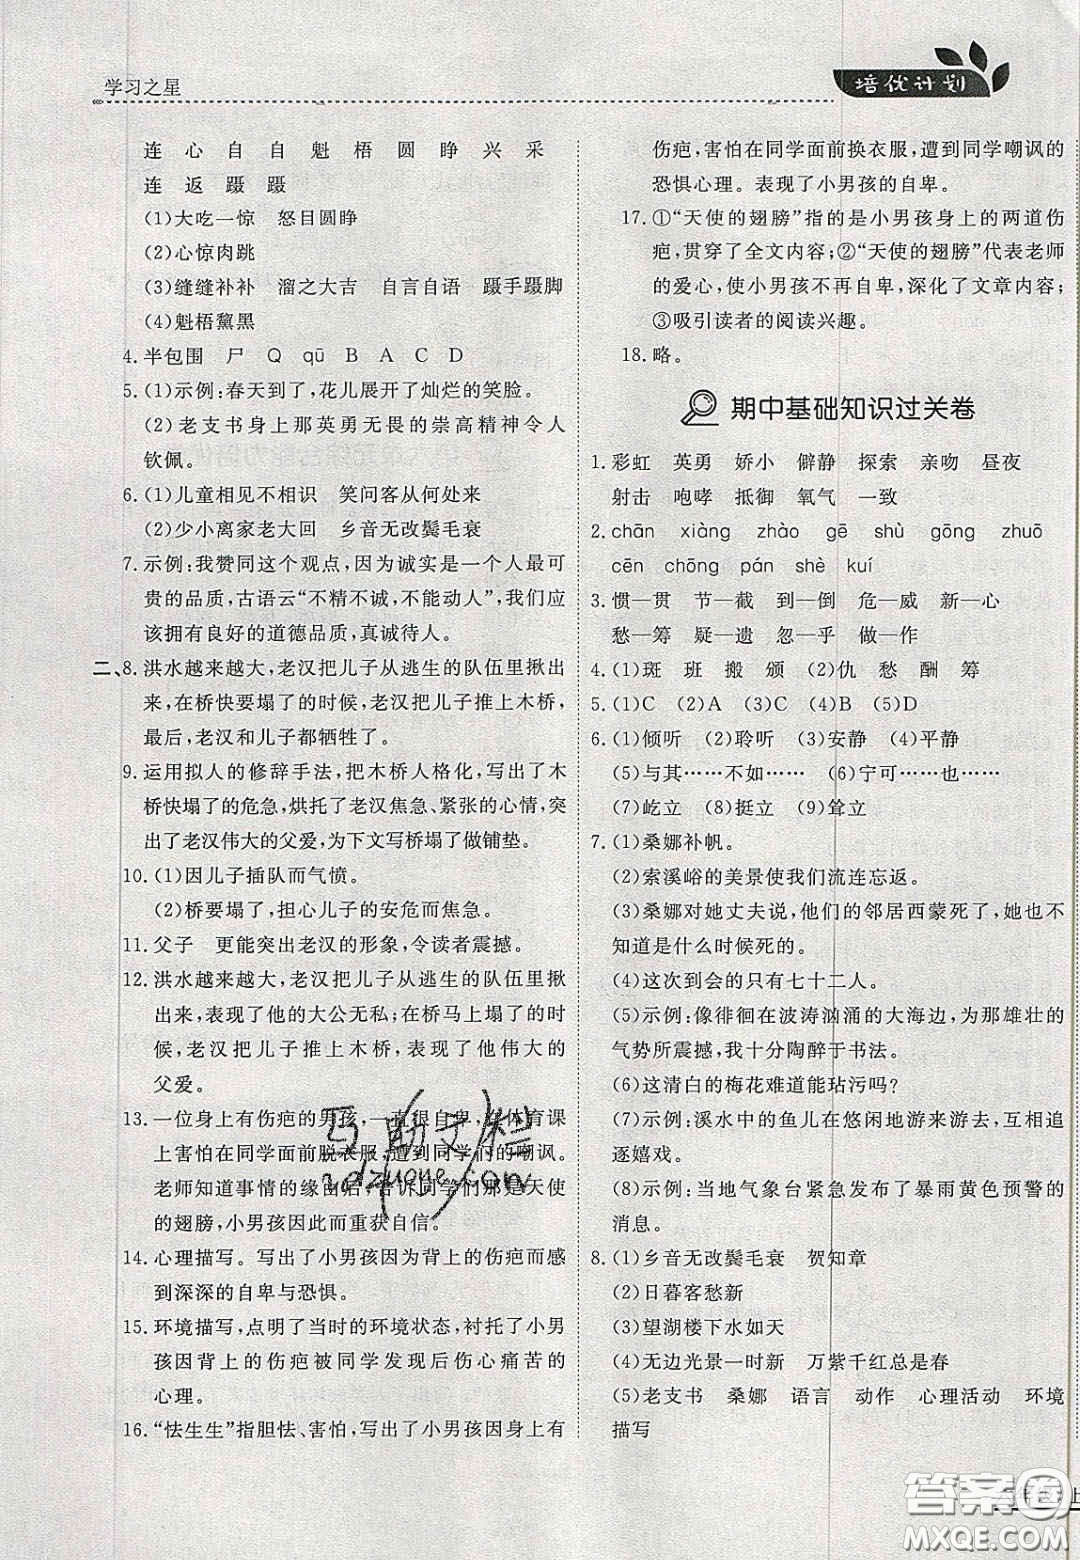 学习之星
培优计划
连 心 自 自 魁 梧 圆 睁 兴 采
连 返 蹑 蹑
(1)大吃一惊 怒目圆睁
(2)心惊肉跳
(3)缝缝补补 溜之大吉 自言自语 蹑手蹑脚
(4)魁梧黧黑
4. 半包围 尸 Q qū B A C D
5. (1)示例:春天到了,花儿展开了灿烂的笑脸。
(2)老支书身上那英勇无畏的崇高精神令人
钦佩。
6. (1)儿童相见不相识 笑问客从何处来
(2)少小离家老大回 乡音无改鬓毛衰
7. 示例:我赞同这个观点,因为诚实是一个人最可
贵的品质,古语云“不精不诚,不能动人”,我们应
该拥有良好的道德品质,真诚待人。
二、8. 洪水越来越大,老汉把儿子从逃生的队伍里揪出
来,在桥快要塌了的时候,老汉把儿子推上木桥,
最后,老汉和儿子都牺牲了。
9. 运用拟人的修辞手法,把木桥人格化,写出了木
桥快塌了的危急,烘托了老汉焦急、紧张的心情,突
出了老汉伟大的父爱,为下文写桥塌了做铺垫。
10. (1)因儿子插队而气愤。
(2)桥要塌了,担心儿子的安危而焦急。
11. 父子 更能突出老汉的形象,令读者震撼。
12. 洪水越来越大,老汉把儿子从逃生的队伍里揪
出来,表现了他的大公无私;在桥马上要塌了的
时候,老汉把儿子推上木桥,表现了他伟大的
父爱。
13. 一位身上有伤疤的男孩,一直很自卑,在体育课
上害怕在同学面前脱衣服,遭到同学们的嘲讽。
老师知道事情的缘由后,告诉同学们那是天使
的翅膀,小男孩因此而重获自信。
14. 心理描写。写出了小男孩因为背上的伤疤而感
到深深的自卑与恐惧。
15. 环境描写,点明了当时的环境状态,衬托了小男
孩因背上的伤疤被同学发现后伤心痛苦的
心理。
16. “怯生生”指胆怯、害怕,写出了小男孩因身上有
伤疤,害怕在同学面前换衣服,遭到同学嘲讽的
恐惧心理。表现了小男孩的自卑。
17. ①“天使的翅膀”指的是小男孩身上的两道伤
疤,贯穿了全文内容;②“天使的翅膀”代表老师
的爱心,使小男孩不再自卑,深化了文章内容;
③吸引读者的阅读兴趣。
18. 略。
期中基础知识过关卷
1. 彩虹 英勇 娇小 僻静 探索 亲吻 昼夜
射击 咆哮 抵御 氧气 一致
2. chān xiàng zhào gē shù gōng zhuō
cēn chōng pán shè kuí
3. 惯—贯 节—截 到—倒 危—威 新—心
愁—筹 疑—遗 忽—乎 做—作
4. (1)斑 班 搬 颁 (2)仇 愁 酬 筹
5. (1)C (2)A (3)C (4)B (5)D
6. (1)倾听 (2)聆听 (3)安静 (4)平静
(5)与其……不如…… (6)宁可……也……
(7)屹立 (8)挺立 (9)耸立
7. (1)桑娜补帆。
(2)索溪峪的美景使我们流连忘返。
(3)桑娜对她丈夫说,他们的邻居西蒙死了,她也不
知道是什么时候死的。
(4)这次到会的只有七十二人。
(5)示例:像徘徊在波涛汹涌的大海边,为那雄壮的
气势所震撼,我十分陶醉于书法。
(6)这清白的梅花难道能玷污吗?
(7)示例:溪水中的鱼儿在悠闲地游来游去,互相追
逐嬉戏。
(8)示例:当地气象台紧急发布了暴雨黄色预警的
消息。
8. (1)乡音无改鬓毛衰 贺知章
(2)日暮客愁新
(3)望湖楼下水如天
(4)无边光景一时新 万紫千红总是春
(5)老支书 桑娜 语言 动作 心理活动 环境
描写
答案圈
MXQE.COM
上